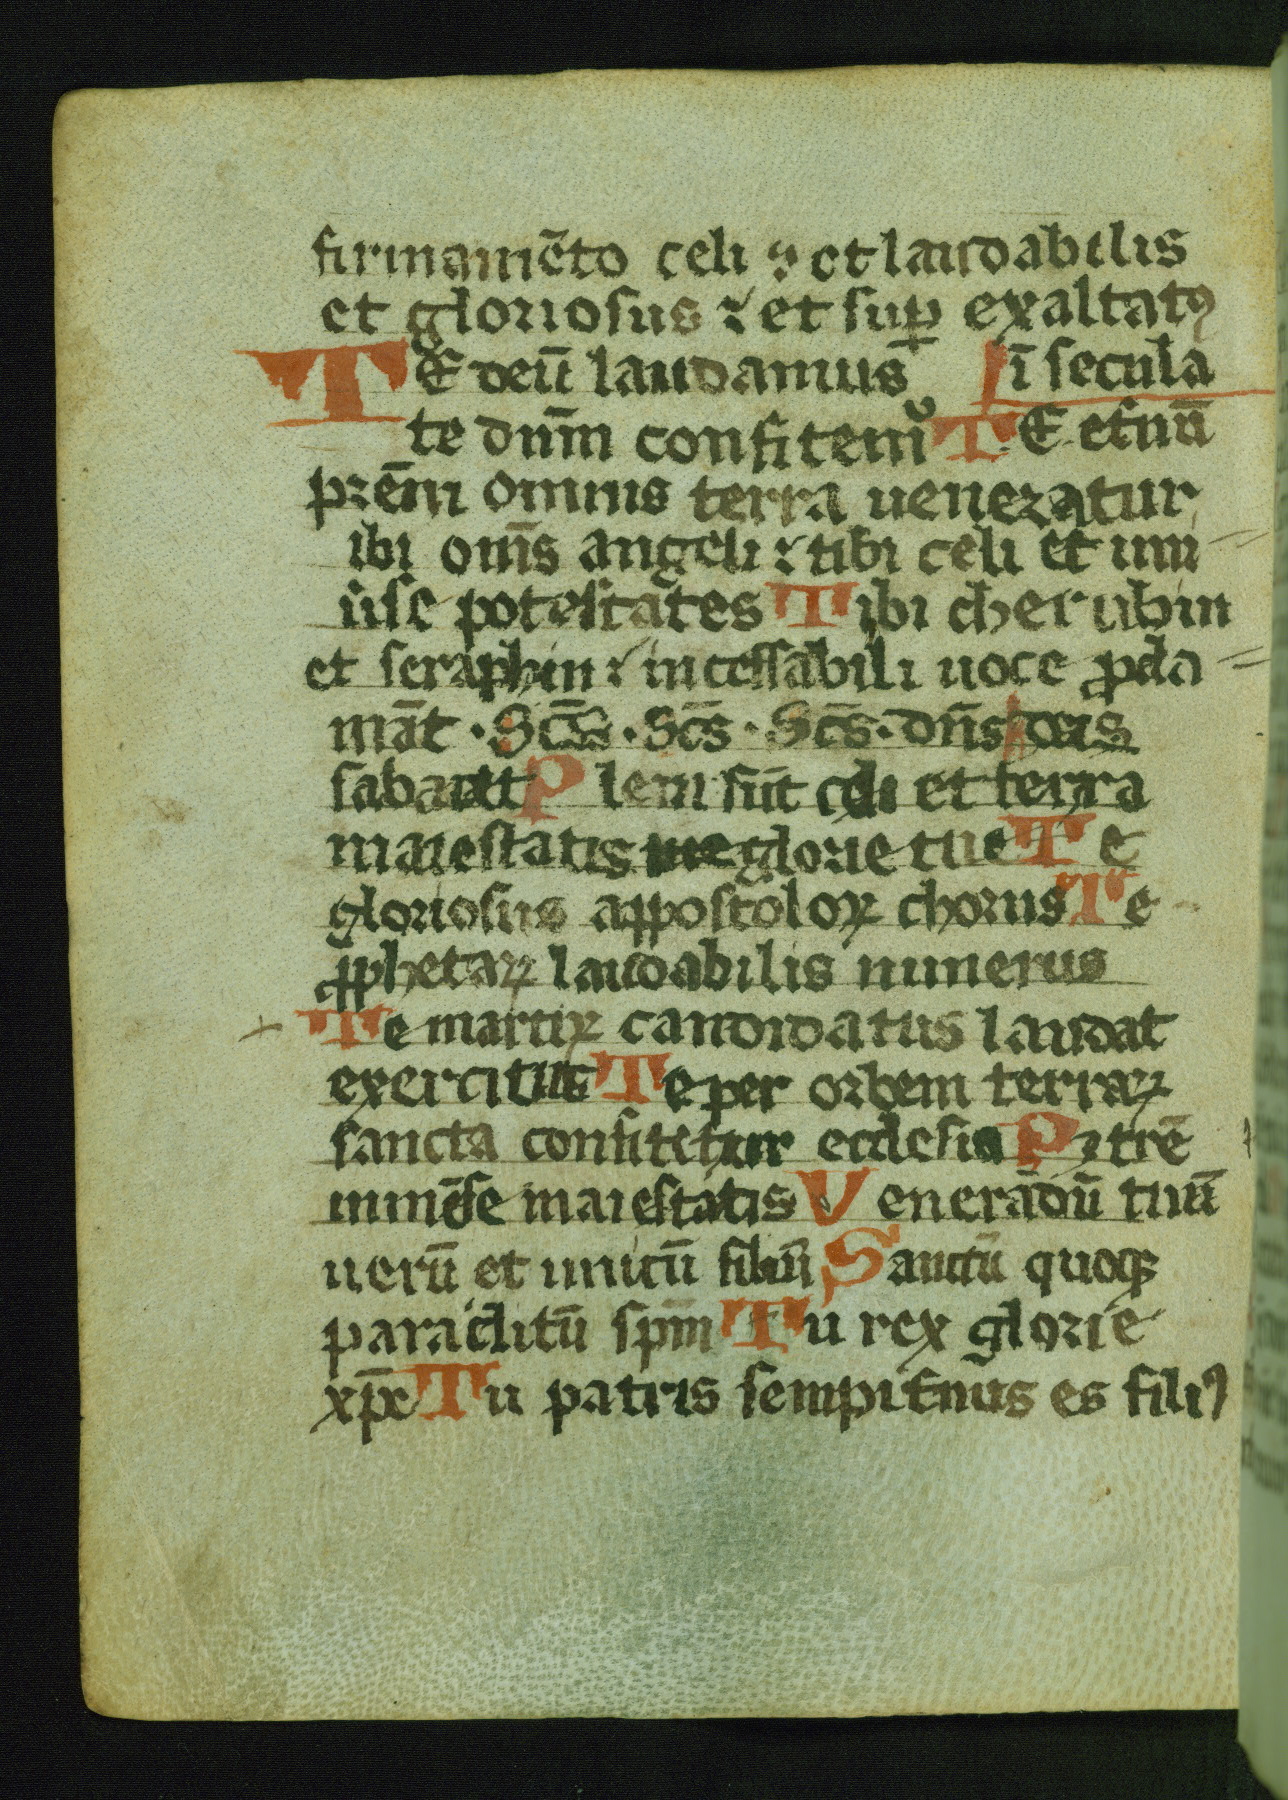 firmamēto celi : et laudabilis
et gloriosus : et suꝑ exaltatꝰ
TE deū laudamus ī secula
te dn̄m confitemuᷣ TE etͥnū
pꝛēm omnis terra ueneꝛatur
ibi om̄s angeli : tibi celi et uni
ūse potestates Tibi cherubin
et seraphin : incessabili uoce ꝓcla
māt · Sc̄s · Sc̄s · Sc̄s · dn̄s deus
sabaott Pleni sūt celi et terra
maiestatis glorie tue Te
gloriosus appostoloꝝ chorus Te
ꝓphetaꝝ laudabilis numerus
Te martiꝝ candidatus laudat
exercitus Te per orbem terraꝝ
sancta confitetur ecclesia Patrē
inmēse maiestatis Venerādū tuū
uerū et unicū filiū Sanctū quoqꝫ
paraclitū sp̄m Tu rex glorie
xp̄e Tu patris sempitnus es filiꝰ